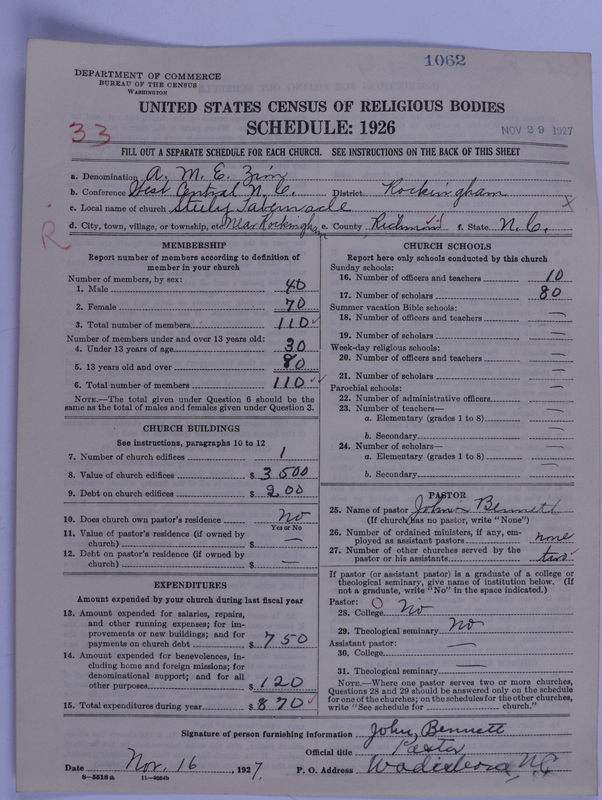 1062
DEPARTMENT OF COMMERCE
BUREAU OF THE CENSUS
WASHINGTON
UNITED STATES CENSUS OF RELIGIOUS BODIES
33
SCHEDULE: 1926
NOV 29 1927
FILL OUT A SEPARATE SCHEDULE FOR EACH CHURCH. SEE INSTRUCTIONS ON THE BACK OF THIS SHEET
a. Denomination A. M. E. Zion
b. Conference West Central N. C. District Rockingham
c. Local name of church Tabernacle X
d. City, town, village, or township, etc Near Rockingham e. County Richmond f. State N. C.
R
MEMBERSHIP
Report number of members according to definition of
member in your church
Number of members, by sex:
1. Male 40
2. Female 70
3. Total number of members 110
Number of members under and over 13 years old:
4. Under 13 years of age 30
5. 13 years old and over 80
6. Total number of members 110
NOTE.—The total given under Question 6 should be the
same as the total of males and females given under Question 3.
CHURCH BUILDINGS
See instructions, paragraphs 10 to 12
7. Number of church edifices 1
8. Value of church edifices $ 3500
9. Debt on church edifices $ 200
10. Does church own pastor's residence No
Yes or No
11. Value of pastor's residence (if owned by
church) $ —
12. Debt on pastor's residence (if owned by
church) $ —
EXPENDITURES
Amount expended by your church during last fiscal year
13. Amount expended for salaries, repairs,
and other running expenses; for im-
provements or new buildings; and for
payments on church debt $ 750
14. Amount expended for benevolences, in-
cluding home and foreign missions; for
denominational support; and for all
other purposes $ 120
15. Total expenditures during year $ 870
CHURCH SCHOOLS
Report here only schools conducted by this church
Sunday schools:
16. Number of officers and teachers 10
17. Number of scholars 80
Summer vacation Bible schools:
18. Number of officers and teachers —
19. Number of scholars —
Week-day religious schools:
20. Number of officers and teachers —
21. Number of scholars —
Parochial schools:
22. Number of administrative officers —
23. Number of teachers—
a. Elementary (grades 1 to 8) —
b. Secondary —
24. Number of scholars—
a. Elementary (grades 1 to 8) —
b. Secondary —
PASTOR
25. Name of pastor John Bennett
(If church has no pastor, write "None")
26. Number of ordained ministers, if any, em-
ployed as assistant pastors none
27. Number of other churches served by the
pastor or his assistants two
If pastor (or assistant pastor) is a graduate of a college or
theological seminary, give name of institution below. (If
not a graduate, write "No" in the space indicated.)
Pastor: 0
28. College No
29. Theological seminary No
Assistant pastor:
30. College —
31. Theological seminary —
NOTE.—Where one pastor serves two or more churches,
Questions 28 and 29 should be answered only on the schedule
for one of the churches; on the schedules for the other churches,
write "See schedule for church."
Signature of person furnishing information John Bennett
Official title Pastor
Date Nov. 16, 1927. P. O. Address Wadesboro, N.C.
8—5518a 11—9554b